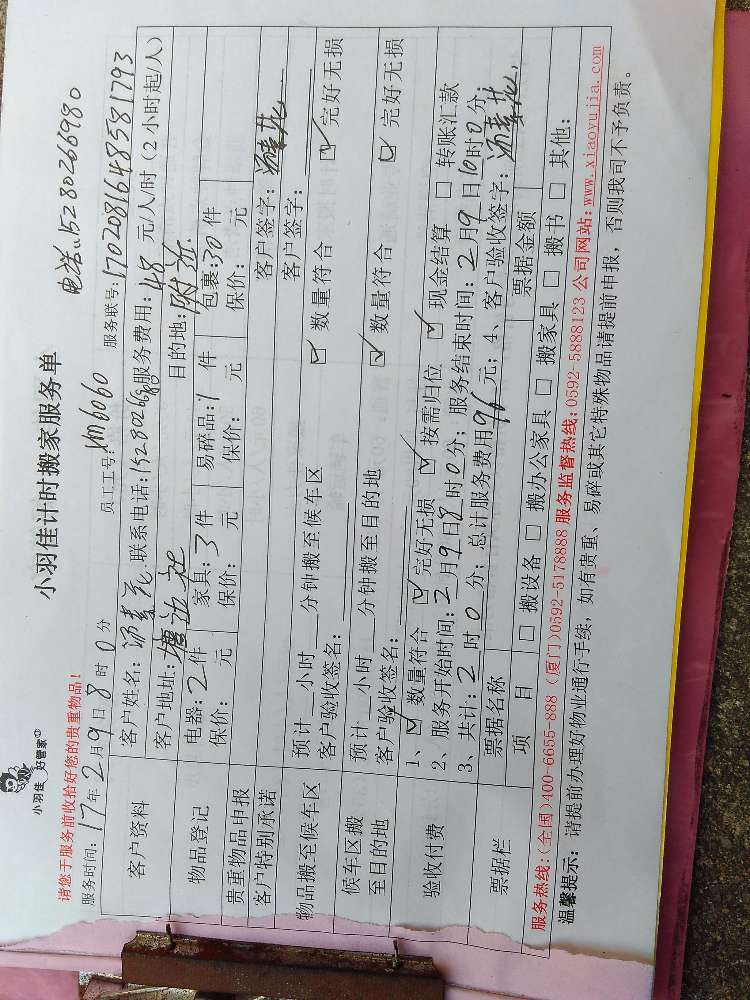 电话:15280266980
小羽佳 好管家
小羽佳计时搬家服务单
请您于服务前收拾好您的贵重物品!
员工工号: Xm6060
服务时间: 17年2月9日8时0分 服务联号: 17020816485581793
客户资料 客户姓名: 汤素花 联系电话:15280266980 服务费用: 48 元/人/时 (2小时起/人)
客户地址: 塘边社 目的地: 附近
物品登记 电器: 2 件 家具: 3 件 易碎品: 1 件 包裹: 30 件
贵重物品申报 保价: 元 保价: 元 保价: 元 保价: 元
客户特别承诺 客户签字: 汤素花
物品搬至候车区 预计 小时 分钟搬至候车区 客户签字:
客户验收签名: ☑ 数量符合 ☑ 完好无损
候车区搬至目的地 预计 小时 分钟搬至目的地
客户验收签名: ☑ 数量符合 ☑ 完好无损
验收付费 1、☑ 数量符合 ☑ 完好无损 ☑ 按需归位 ☑ 现金结算 □ 转账汇款
2、服务开始时间: 2月9日8时0分; 服务结束时间: 2月9日10时0分
3、共计: 2 时 0 分; 总计服务费用 96 元; 4、客户验收签字: 汤素花
票据栏 票据名称 票据金额
项 目 □ 搬设备 □ 搬办公家具 □ 搬家具 □ 搬书 □ 其他:
服务热线:(全国)400-6655-888 (厦门)0592-5178888 服务监督热线:0592-5888123 公司网站:www.xiaoyujia.com
温馨提示: 请提前办理好物业通行手续, 如有贵重、易碎或其它特殊物品请提前申报, 否则我司不予负责。